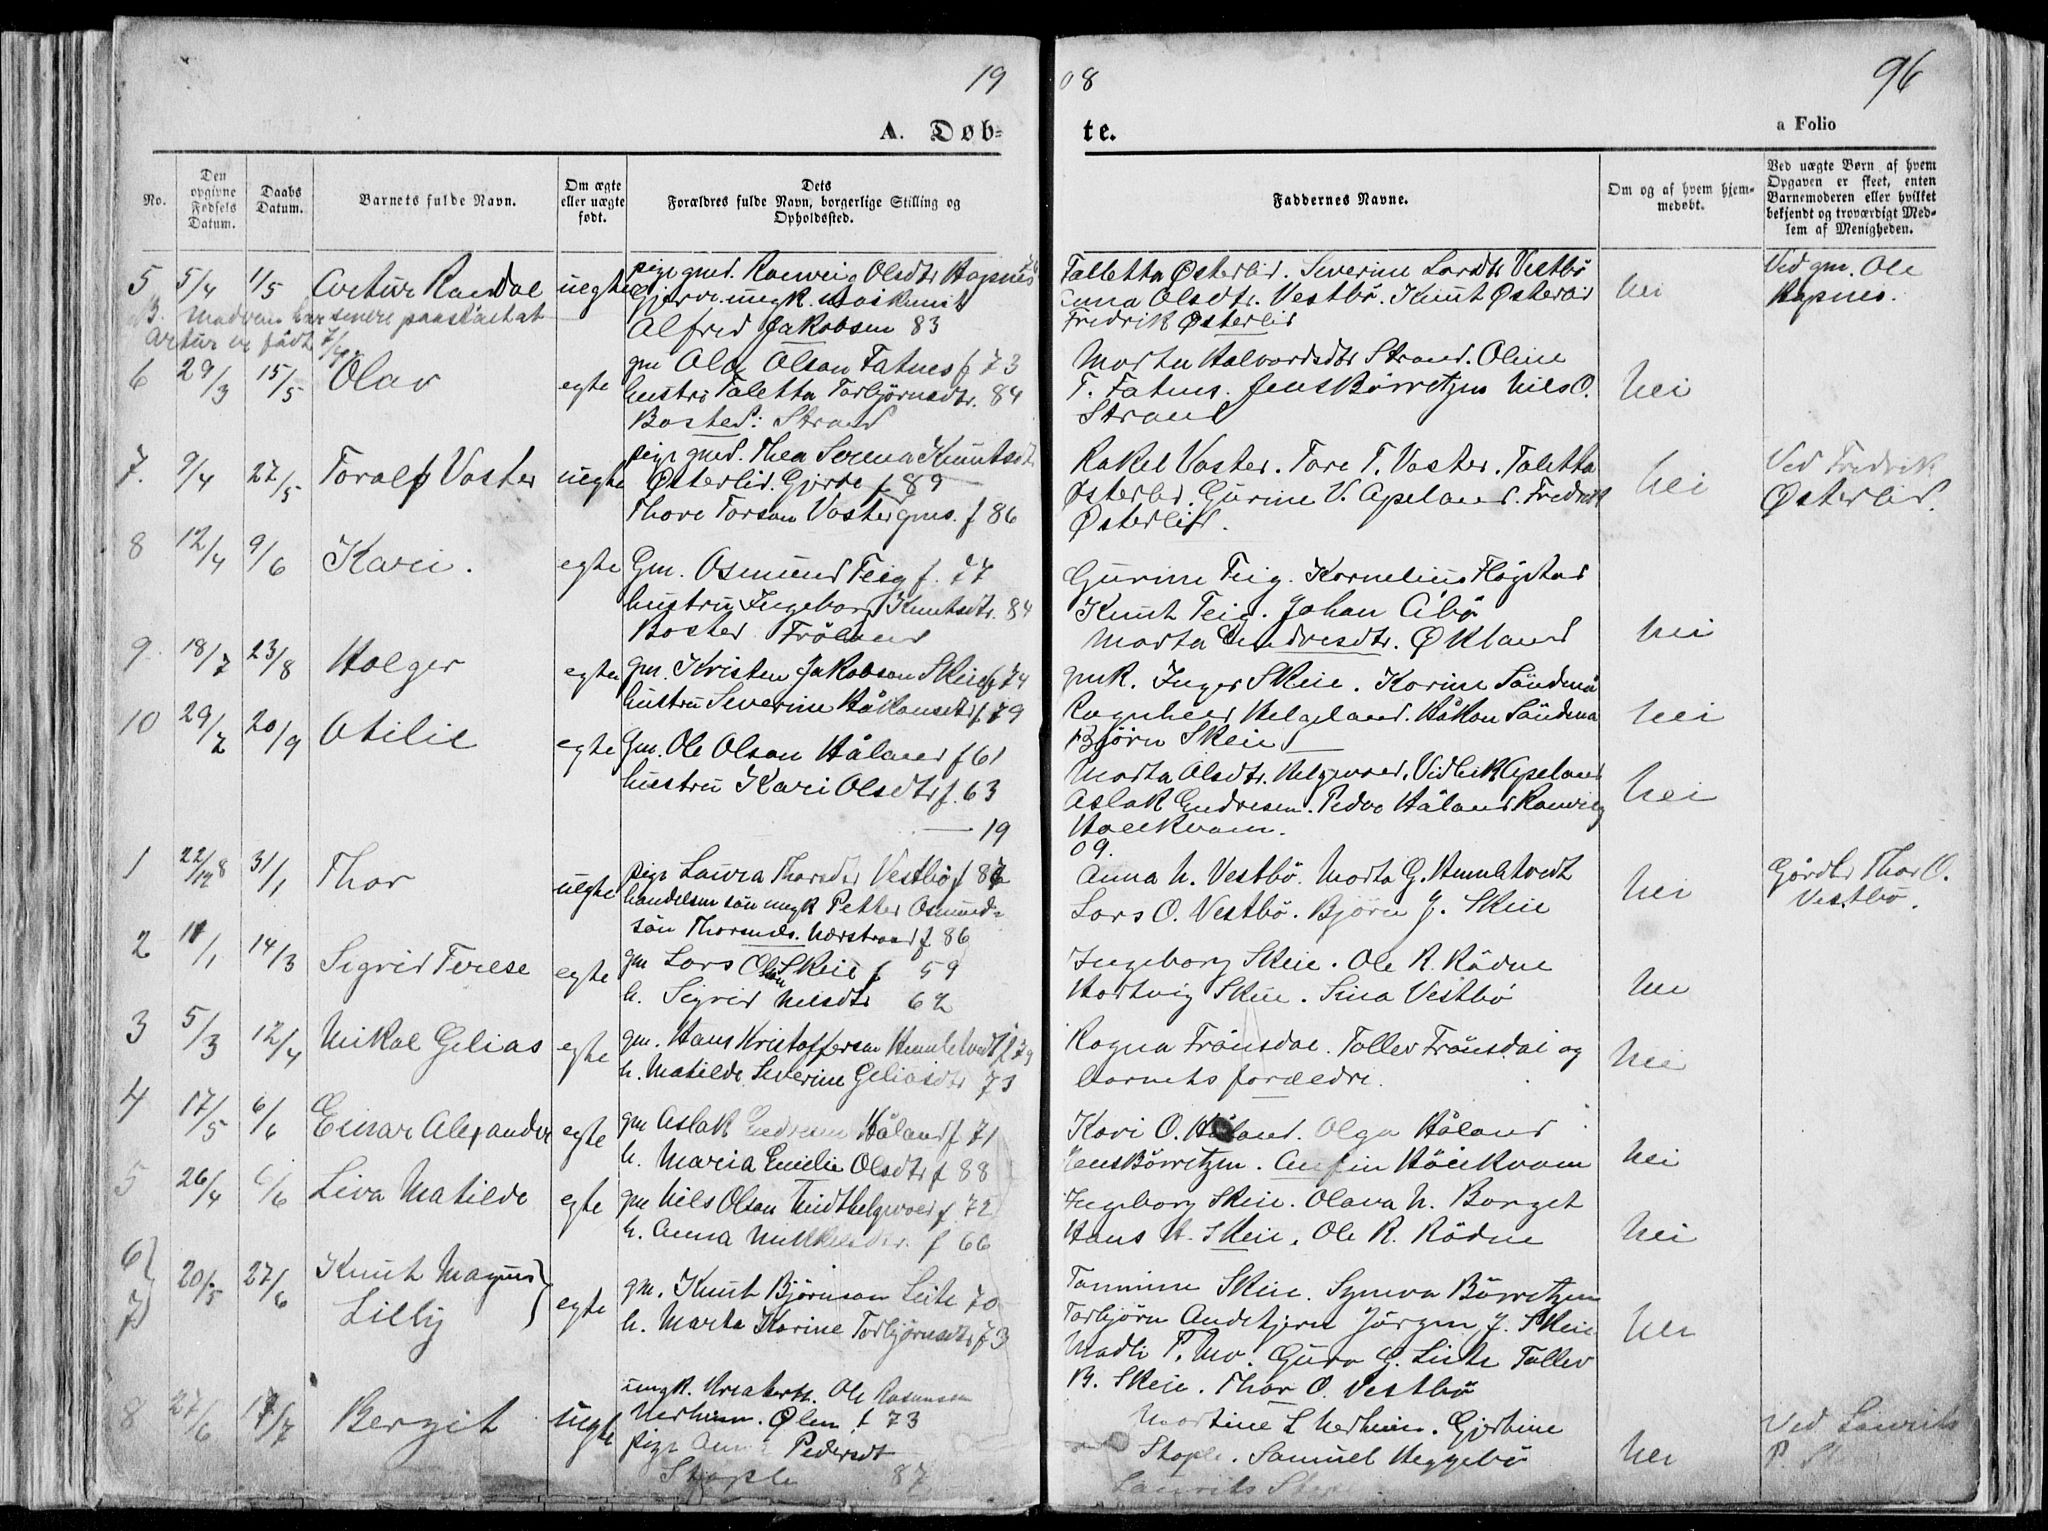 19 08 96
A. Døb- te. a Folio
No.
Den opgivne Fødsels Datum.
Daabs Datum.
Barnets fulde Navn.
Om ægte eller uægte født.
Dets Forældres fulde Navn, borgerlige Stilling og Opholdssted.
Faddernes Navne.
Om og af hvem hjemmedøbt.
Ved uægte Børn af hvem Opgaven er skeet, enten Barnemoderen eller hvilket bekjendt og troværdigt Medlem af Menigheden.
5 5/4 1/5 Artur Randal uegte
pige gmd. Ranveig Olsdtr Hapnes
Gjerde. ungk.
Alfred Jakobsen 83
Taletta Østerlid. Severine Larsdtr Vestbø
Anna Olsdtr. Vestbø. Knut Østerlid
Fredrik Østerlid
nei
Ved gm. Ole
Hapnes.
Artur er født
6 29/3 15/5 Olav egte
gm Ola Olson Fatnes f 73
hustru Taletta Torbjørnsdtr. 84
Bosted: Strand
Marta Halvardsdtr Strand. Oline
T. Fatnes. Jens Børretzen Nils O.
Strand
nei
7. 9/4 27/5 Toralf Vaster uegte
pige gmd. Thea Serina Knutsdtr
Østerlid. Gjerde f 89
Thore Torson Vaster gms. f 86
Rakel Vaster. Tore T. Vaster. Taletta
Østerlid. Gurine V. Apeland. Fredrik
Østerlid.
nei
Ved Fredrik
Østerlid.
8 12/4 9/6 Kari. egte
Gm. Osmund Teig f. 77
hustru Ingeborg Knutsdtr. 84
Bosted Frøland
Gurine Teig. Kornelius Fløgstad
Knut Teig. Johan Åbø
Marta Endresdtr. Økland
nei
9. 18/7 23/8 Holger egte
gm. Kristen Jakobson Skeie f 74
hustru Severine Håkonsdtr f. 79
gmk. Inger Skeie. Korine Søndenå
Ragnheid Helgeland. Håkon Søndenå
Bjørn Skeie
nei
10 29/7 20/9 Otilie egte
Gm. Ole Olson Håland f 61
hustru Kari Olsdtr f. 63
Marta Olsdtr. Helgevoed. Vidleik Apeland
Aslak Endresen. Peder Håland Ranveig
Haukvam.
nei
19 09.
1 22/12 8 31/1 Thor uegte
pige Laura Thorsdtr Vestbø f 87
handelsm søn ungk Petter Osmund-
søn Thorsnes. Nærstrand f 86
Anna N. Vestbø. Marta G. Humletvedt
Lars O. Vestbø. Bjørn J. Skeie
nei
Gårdbr Thor O.
Vestbø.
2 11/1 14/3 Sigrid Terese egte
gm Lars Olsen Skeie f 59
h. Sigrid Nilsdtr 62
Ingeborg Skeie. Ole R. Rødne
Hartvig Skeie. Sina Vestbø
nei
3 5/3 12/4 Mikal Gelias egte
gm. Hans Kristofferson Humletvedt f 79
h. Matilde Severine Geliasdtr 73
Ragna Frønsdal. Tollev Frønsdal og
barnets forældre.
nei
4 17/5 6/6 Einar Alexander egte
gm Aslak Endresen Håland f 71
h. Maria Emilie Olsdtr f 88
Kari O. Håland. Olga Håland
Jens Børretzen. Anfin Høikvam
nei
5 26/4 6/6 Liva Matilde egte
gm Nils Olson Midthelgevoed f 72
h. Anna Mikkelsdtr. f 66
Ingeborg Skeie. Olava N. Borget
Hans H. Skeie. Ole R. Rødne
nei
6 7 20/5 27/6 Knut Magnus
Lilly egte
gm. Knut Bjørnson Leite 70
h. Marta Karine Torbjørnsdtr f 73
Tomine Skeie. Synva Børretzen
Torbjørn Austitjern Jørgen J. Skeie
Madli P. Mo. Guro G. Leite Tollev
B. Skeie. Thor O. Vestbø
nei
8 27/6 17/7 Bergit uegte
ungk. Ole Rasmusen
Nerheim. Ølen f 73
pige Anna Pedersdt
Stople 87
Martine L Nerheim. Gjertine
Stople. Samuel Heggebø
Laurits Stople
nei
Ved Laurits
P.